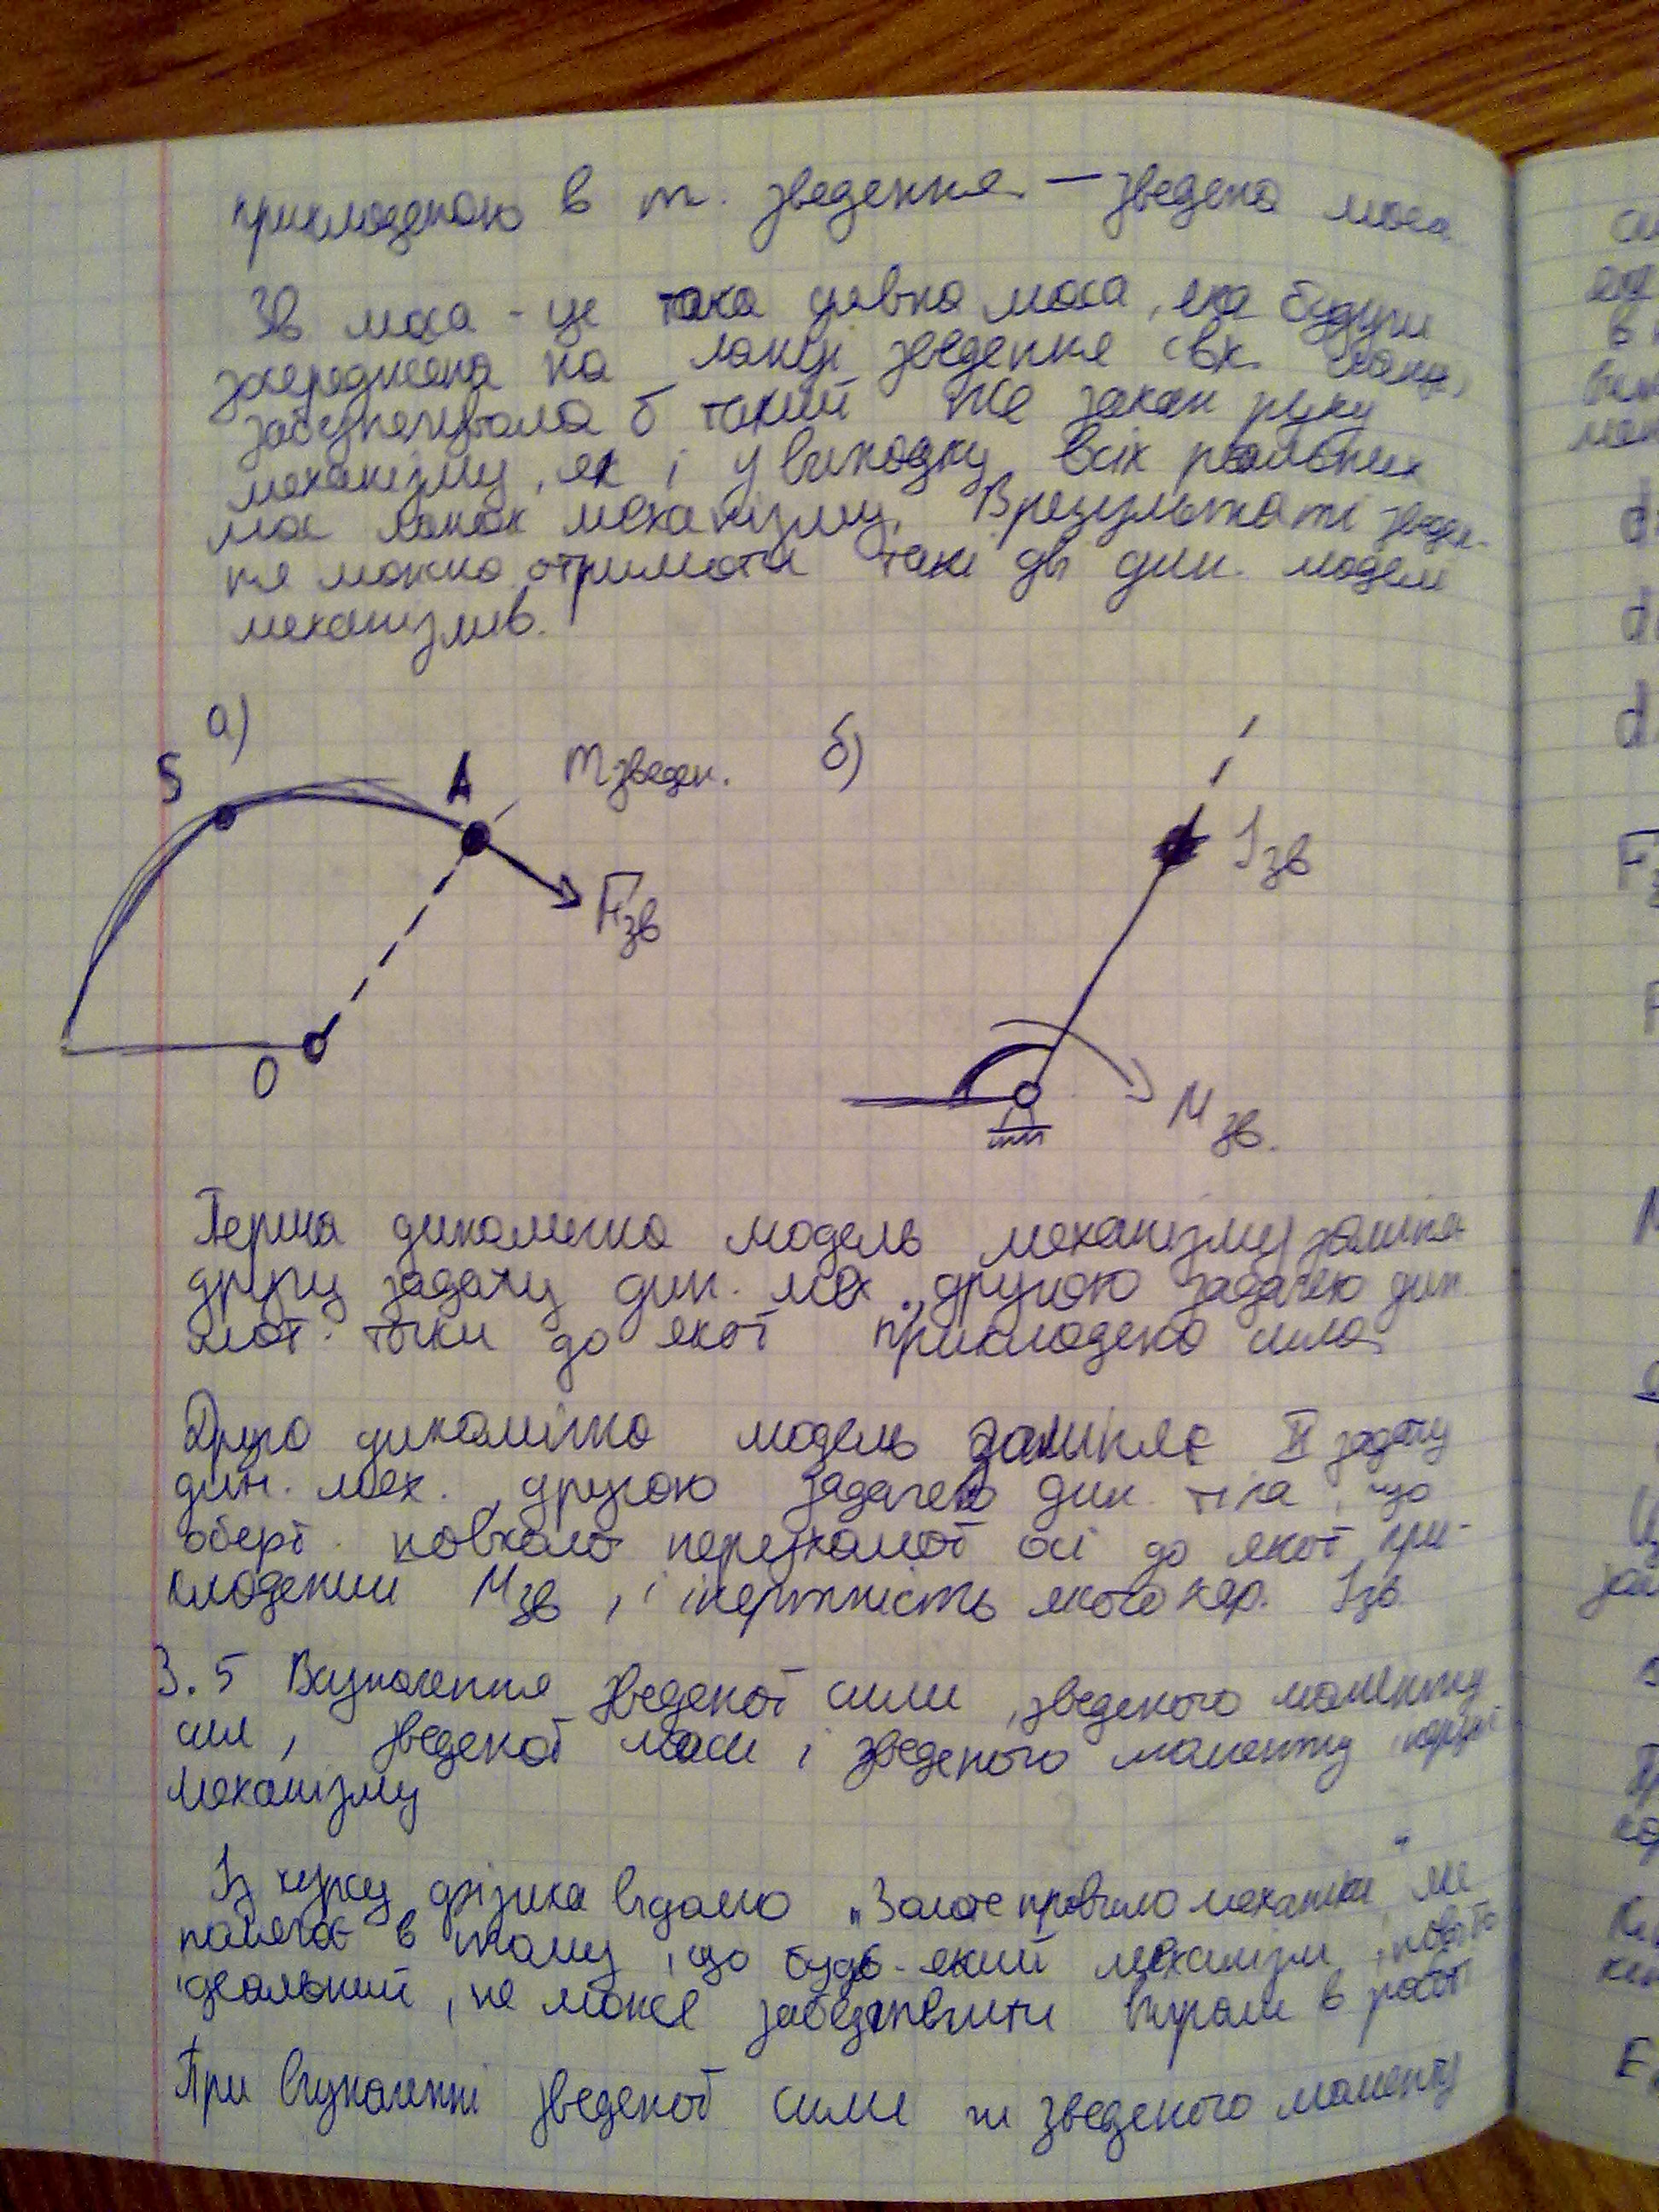 прикладеною в т. зведення — зведена маса
Зв. маса - це така умовна маса, яка будучи
зосереджена на ланці зведення (вх. ланц)
забезпечувала б такий же закон руху
механізму, як і у випадку всіх реальних
мас ланок механізму. В результаті зведен-
ня можна отримати такі дві дин. моделі
механізмів.
а)
б)
S
A
m зведен.
Iзв
F̅зв
O
Mзв.
Перша динамічна модель механізму заміня
другу задачу дин. мех., другою задачею дин.
мат. точки до якої прикладена сила
Друга динамічна модель заміняє II задачу
дин. мех. другою задачею дин. тіла, що
оберт. навколо нерухомої осі до якої при-
кладений Mзв, і інертність якого хар. Iзв
3.5 Визначення зведеної сили, зведеного моменту
сил, зведеної маси і зведеного моменту інерції
механізму
Із курсу фізика відомо „Золоте правило механіки" яке
полягає в тому, що будь-який механізм, навіть
ідеальний, не може забезпечити виграш в роботі
При визначенні зведеної сили чи зведеного моменту